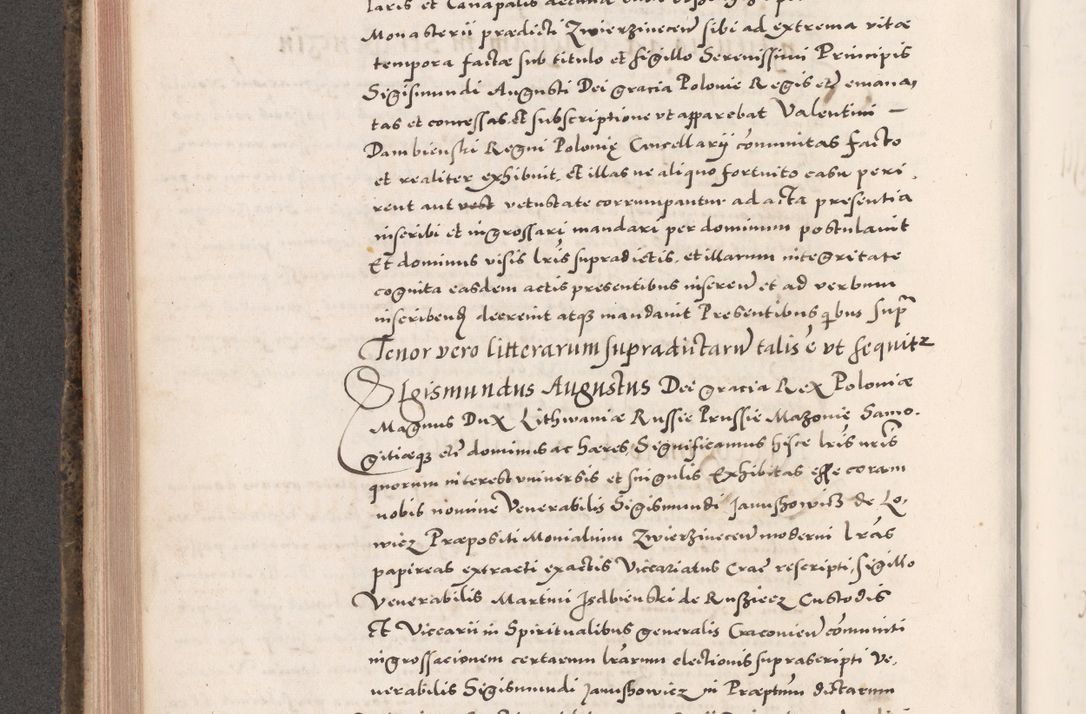 laris et Canapalis
Monasterii prædicti Zwierzinecen̄ sibi ad extrema vitæ
tempora factæ sub titulo et sigillo Serenissimi Principis
Sigismundi Augusti Dei gracia Polonie Regis etc̄ emana,
tas et concessas, et subscriptione vt apparebat Valentini —
Dambienski Regni Polonię Cancellarÿ com̄unitas facto
et realiter exhibuit, et illas ne aliquo fortuito casu peri,
rent aut vest vetustate corrumpantur ad acta presentia
inscribi et ingrossari mandari per dominum postulauit
Et dominus visis lr̄is supradictis, et illarum integritate
cognita easdem actis presentibus inseren̄ et ad verbum
inscribend̄ decreuit atq̄ mandauit Presentibus qibus supr̄
Tenor vero litterarum supradictarum̄ talis ē vt sequitr
Sigismundus Augustus Dei gracia Rex Poloniæ
Magnus Dux Lithwaniæ Russie Prussie Mazouię Samo,
gitiæq̄ etc̄ dominus ac hæres, Significamus hisce lr̄is nr̄is
quorum interest vniuersis et singulis Exhibitas esse coram
nobis nomine Venerabilis Sigismundi Januszowicz de Lo,
wicz Præpositi Monialium Zwierzinecen̄ moderni lr̄as
papireas extracti ex actis Vicariatus Crac̄ rescripti, sigillo
Venerabilis Martini Izdbienski de Rusziecz Custodis
Et Vicarii in Spiritualibus generalis Cracouien̄ com̄uniti
ingrossacionem certarum lr̄arum electionis suprascripti Ve,
nerabilis Sigismundi Januszowicz in Præptum̄ dictarum